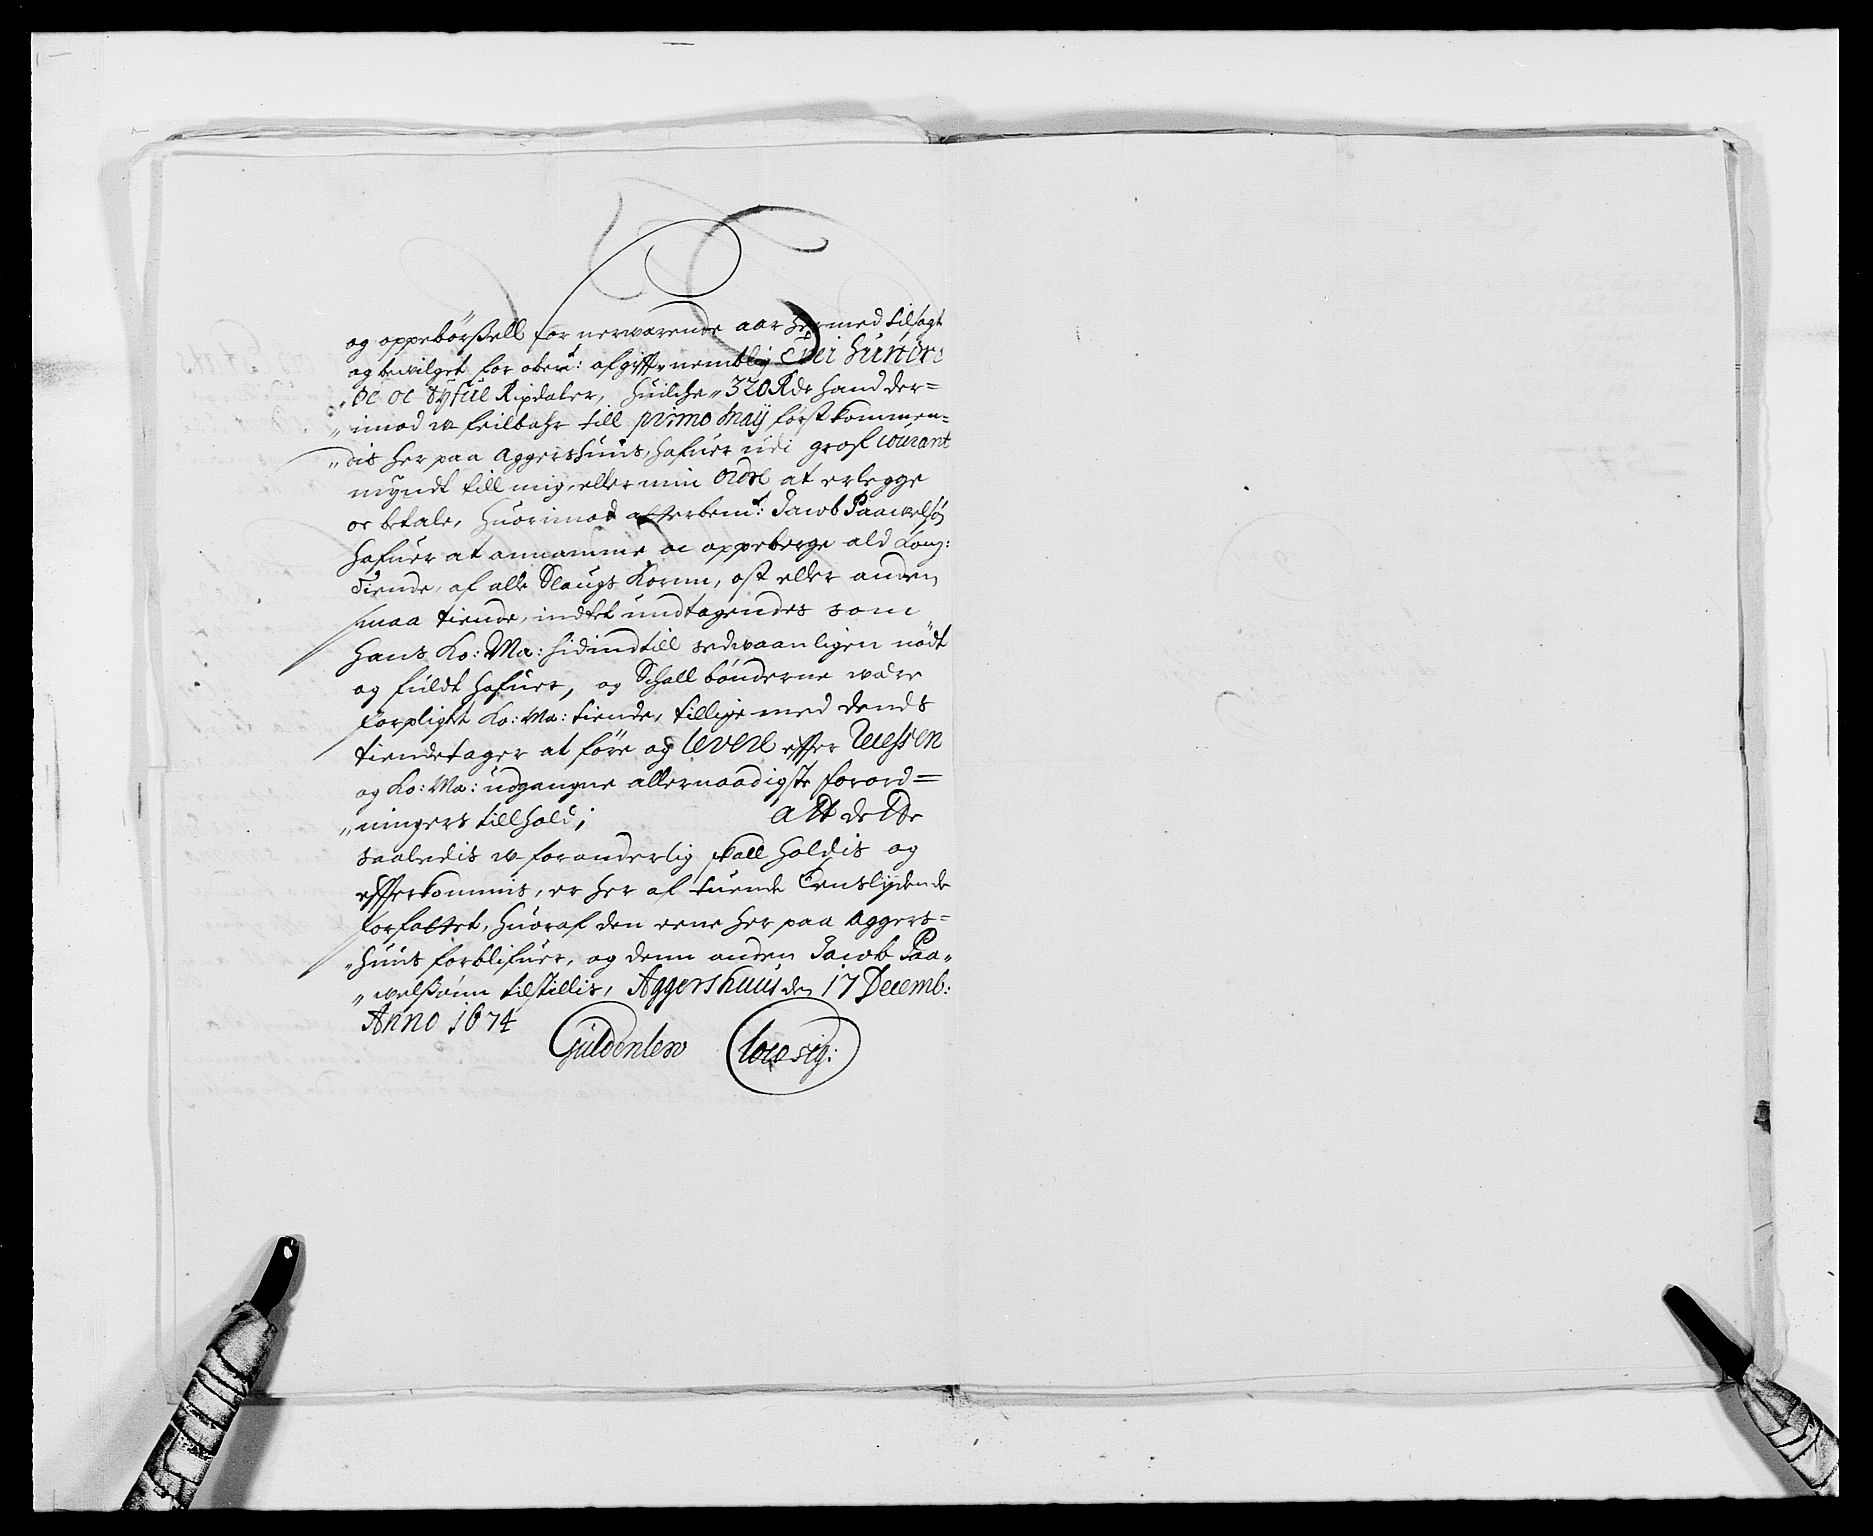 og oppebørßell for nerwærende aar hermed tilsagt
og bewilget for afgifft nemblig Trei Hundre
oc oc tyfue Rixdaler, Huilche 320 Rdr hand der=
imod u-feilbahr till primo Maij først kommen=
dis her paa Aggershuus, hafuer udi grof courant
myndt till mig, eller min Ordre at erlegge
oc betale, Huorimod Jacob Paawelsøn
hafuer at annamme oc oppeberge ald Kong:
Tiende, af alle Slaugs Kornn, ost eller anden
smaa tiende, indtet undtagendes som
Hans Ko: Ma: hidindtill sedwaanligen nødt
og fuldt hafuer, og Schall bønderne være
forpligtet Ko: Ma: tiende, tillige med dends
tiendetager at føre og levere effter Recessen
og Ko: Ma: udgangne allernaadigste forord=
ningers tillhold; Att dette
saaledis u-foranderlig skall holdis og
effterkommis, er her af tuende Eenslydende
forfattet, huoraf den eene her paa Aggers=
huus forblifuer, og denn anden Jacob Paa
welßønn tilstillis, Aggershuus den 17 Decemb:
Anno 1674
Güldenlew Loco sig: